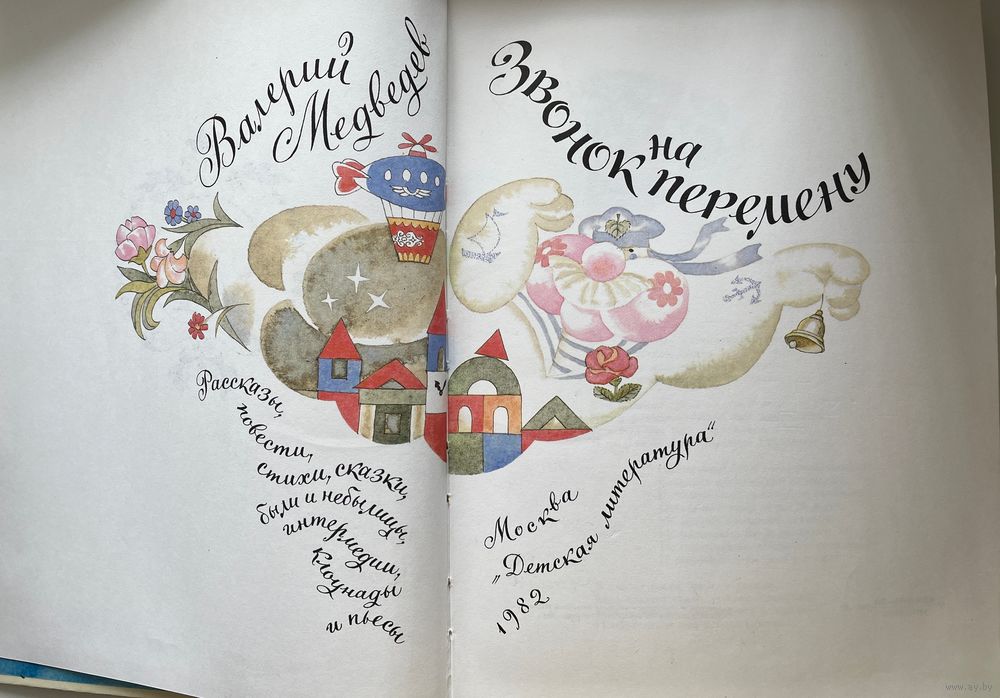 Валерий
Медведев
Звонок на перемену
Рассказы,
повести,
стихи, сказки,
были и небылицы,
интермедии,
клоунады
и пьесы
Москва
„Детская литература“
1982
www.ay.by